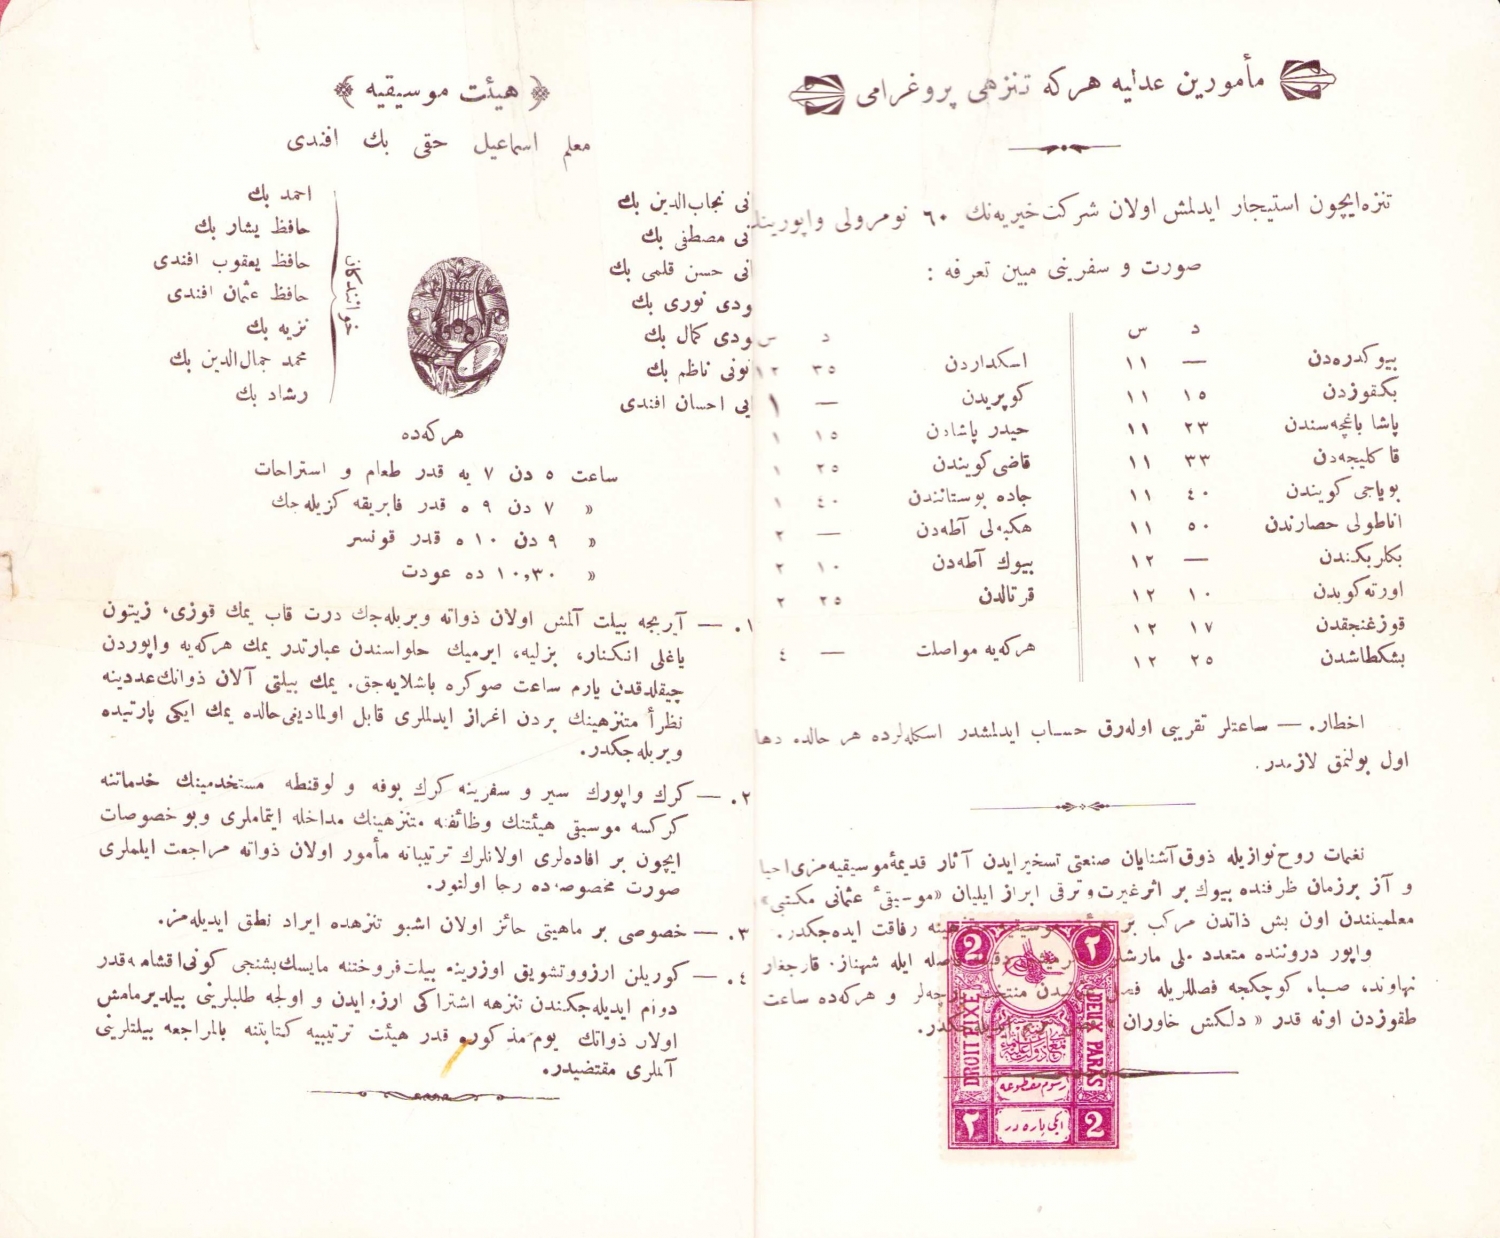 مأمورین عدلیه هركه تنزهی پروغرامی
تنزه ایچون استیجار ایدلمش اولان شركت خیریه‌نك ٦٠ نومرولی واپورینك
صورت و سفرینی مبین تعرفه :
د س
بیوكدره‌دن — ١١
بكقوزدن ١٥ ١١
پاشا باغچه‌سندن ٢٣ ١١
قانلیجه‌دن ٣٣ ١١
بویاجی كویندن ٤٠ ١١
اناطولی حصارندن ٥٠ ١١
بكلربكندن — ١٢
اورته‌كویدن ١٠ ١٢
قوزغنجقدن ١٧ ١٢
بشكطاشدن ٢٥ ١٢
د س
اسكداردن ٣٥ ١٢
كوپریدن — ١
حیدر پاشادن ١٥ ١
قاضی كویندن ٢٥ ١
جاده بوستانندن ٤٠ ١
هكبه‌لی آطه‌دن — ٢
بیوك آطه‌دن ١٠ ٢
قرتالدن ٢٥ ٢
هركه‌یه مواصلت — ٤
اخطار. — ساعتلر تقریبی اوله‌رق حساب ایدلمشدر اسكله‌لرده هر حالده دها
اول بولنمق لازمدر.
نغمات روح نوازیله ذوق آشنایان صنعتی تسخیر ایدن آثار قدیمۀ موسیقیه‌مزی احیا
و آز برزمان ظرفنده بیوك بر اثر غیرت و ترقی ابراز ایلیان «موسیقئ عثمانی مكتبی»
معلمیندن اون بش ذاتدن مركب بر هیئت موسیقیه متنزهینه رفاقت ایده‌جكدر.
واپور دروننده متعدد ملی مارشلر فاصله ایله شهناز. قارجغار
نهاوند، صبا، كوچكجه فصللریله منتخب پارچه‌لر و هركه‌ده ساعت
طقوزدن اونه قدر « دلكش خاوران »
2 ٢
DROIT FIXE DEUX PARAS
رسوم مقطوعه
ایكی پاره در
٢ 2
هیئت موسیقیه
معلم اسماعیل حقی بك افندی
نی نجاب‌الدین بك
نی مصطفی بك
نی حسن قلمی بك
ودی نوری بك
ودی كمال بك
نونی ناظم بك
یی احسان افندی
خوانندكان
احمد بك
حافظ یشار بك
حافظ یعقوب افندی
حافظ عثمان افندی
نزیه بك
محمد جمال‌الدین بك
رشاد بك
هركه‌ده
ساعت ٥ دن ٧ یه قدر طعام و استراحات
» ٧ دن ٩ ه قدر فابریقه كزیله‌جك
» ٩ دن ١٠ ه قدر قونسر
» ١٠,٣٠ ده عودت
١. — آیریجه بیلت آلمش اولان ذواته ویریله‌جك درت قاب یمك قوزی، زیتون
یاغلی انكنار، بزلیه، ایرمیك حلواسندن عبارتدر یمك هركه‌یه واپوردن
چیقلدقدن یارم ساعت صوكره باشلایه‌جق. یمك بیلتی آلان ذواتك عددینه
نظراً متنزهینك بردن اغراز ایدلملری قابل اولمادیغی حالده یمك ایكی پارتیده
ویریله‌جكدر.
٢. — كرك واپورك سیر و سفرینه كرك بوفه و لوقنطه مستخدمینك خدماتنه
كركسه موسیقی هیئتنك وظائفنه متنزهینك مداخله ایتماملری وبو خصوصات
ایچون بر افاده‌لری اولانلرك ترتیباته مأمور اولان ذواته مراجعت ایلملری
صورت مخصوصه‌ده رجا اولنور.
٣. — خصوصی بر ماهیتی حائز اولان اشبو تنزهده ایراد نطق ایدیله‌مز.
٤. — كوریلن ارزو و تشویق اوزرینه بیلت فروختنه مایسك بشنجی كونی اقشامنه قدر
دوام ایدیله‌جكندن تنزهه اشتراكی ارزو ایدن و اولجه طلبلرینی بیلدیرمامش
اولان ذواتك یوم مذكوره قدر هیئت ترتیبیه كتابتنه بالمراجعه بیلتلرینی
آلملری مقتضیدر.